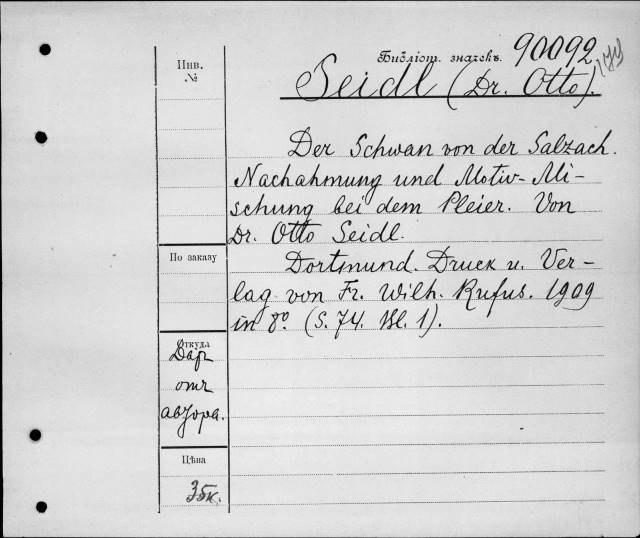 Инв.
№
Библіот. значекъ. 90092
Seidl (Dr. Otto).
Der Schwan von der Salzach.
Nachahmung und Motiv-Mi-
schung bei dem Pleier. Von
Dr. Otto Seidl.
По заказу
Dortmund. Druck u. Ver-
lag von Fr. Wilh. Rufus. 1909
in 8º. (S. 74. Bl. 1).
Откуда
Дар
отъ
автора.
Цѣна
35к.